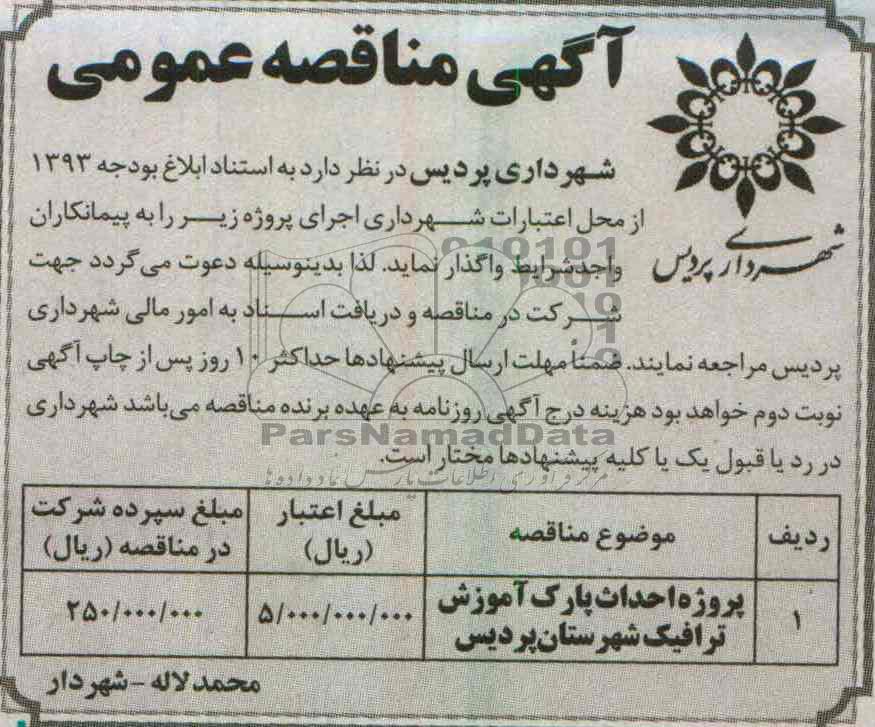 آگهی مناقصه عمومی
شهرداری پردیس
شهرداری پردیس در نظر دارد به استناد ابلاغ بودجه ۱۳۹۳
از محل اعتبارات شهرداری اجرای پروژه زیر را به پیمانکاران
واجدشرایط واگذار نماید. لذا بدینوسیله دعوت می‌گردد جهت
شرکت در مناقصه و دریافت اسناد به امور مالی شهرداری
پردیس مراجعه نمایند. ضمناً مهلت ارسال پیشنهادها حداکثر ۱۰ روز پس از چاپ آگهی
نوبت دوم خواهد بود هزینه درج آگهی روزنامه به عهده برنده مناقصه می‌باشد شهرداری
در رد یا قبول یک یا کلیه پیشنهادها مختار است.
ParsNamadData
مرکز فرآوری اطلاعات پارس نماد داده ها
ردیف موضوع مناقصه مبلغ اعتبار (ریال) مبلغ سپرده شرکت در مناقصه (ریال)
۱ پروژه احداث پارک آموزش ترافیک شهرستان پردیس ۵/۰۰۰/۰۰۰/۰۰۰ ۲۵۰/۰۰۰/۰۰۰
محمد لاله - شهردار